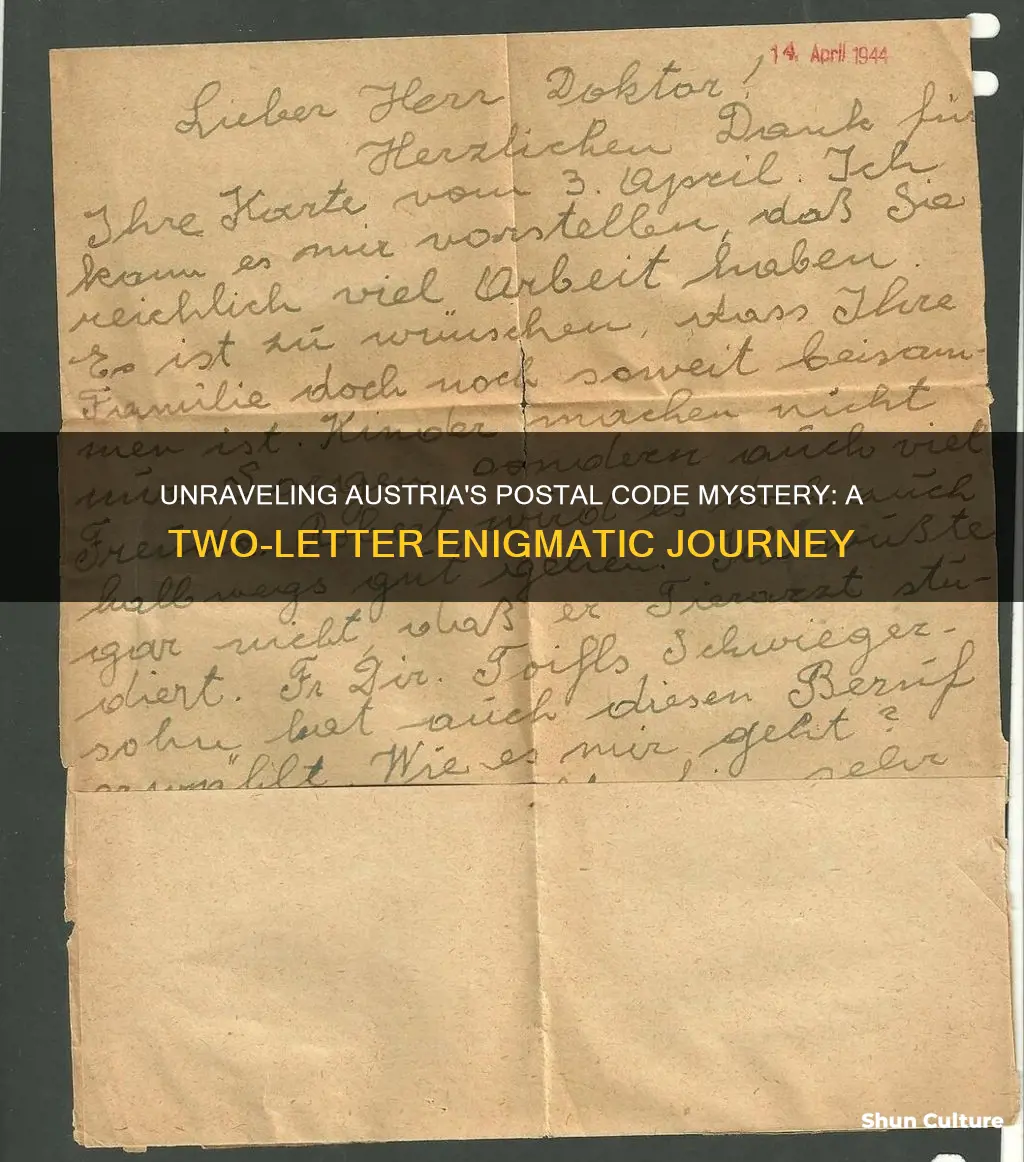 14. April 1944
Lieber Herr Doktor!
Herzlichen Dank für
Ihre Karte vom 3. April. Ich
kann es mir vorstellen, daß Sie
reichlich viel Arbeit haben.
Es ist zu wünschen, dass Ihre
Familie doch noch soweit beisam-
men ist. Kinder machen nicht
nur Sorgen, sondern auch viel
UNRAVELING AUSTRIA'S POSTAL CODE MYSTERY: A
TWO-LETTER ENIGMATIC JOURNEY
Freude. wird es auch
halbwegs gut gehen. wußte
gar nicht, daß er Tierarzt stu-
diert. Fr. Dir. Toifls Schwieger-
sohn hat auch diesen Beruf
erwählt. Wie es mir geht?
sehr
Shun Culture